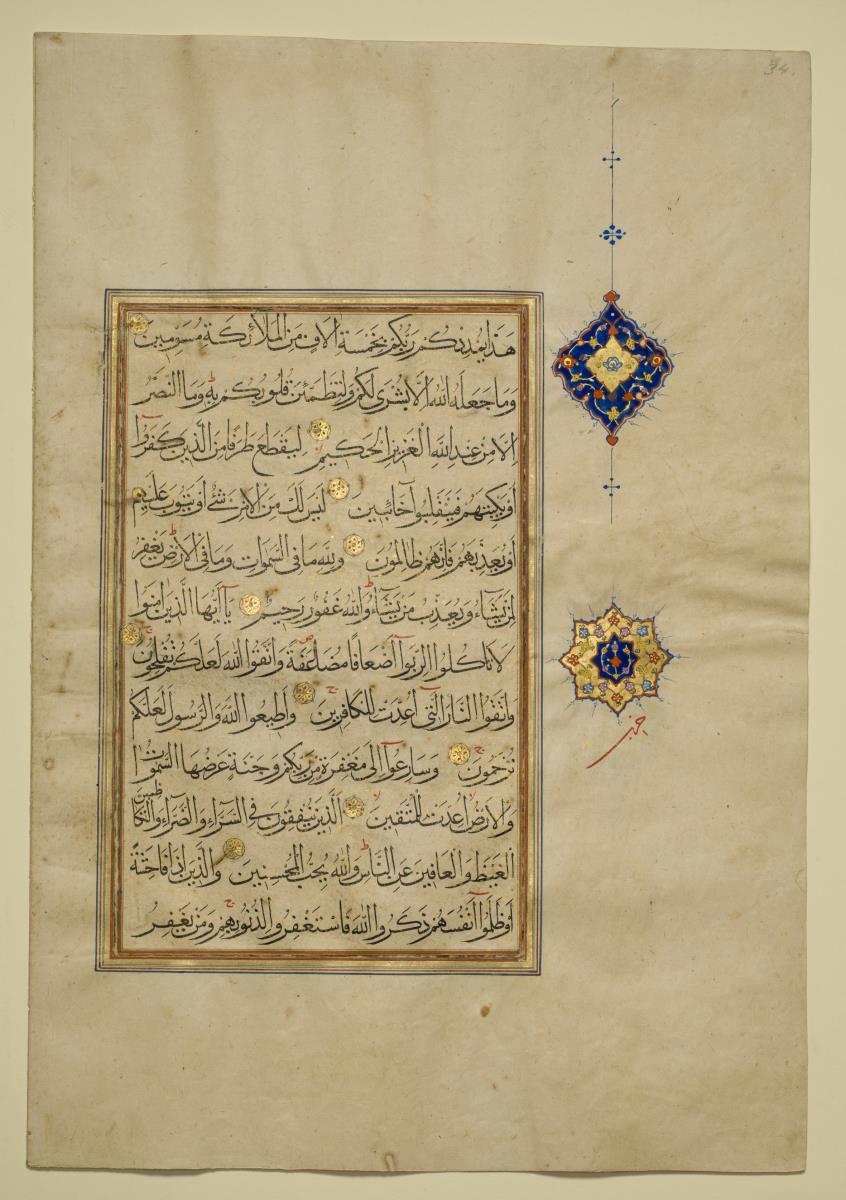 34.
هَذَا يُمْدِدْكُمْ رَبُّكُمْ بِخَمْسَةِ آلَافٍ مِنَ الْمَلَائِكَةِ مُسَوِّمِينَ
وَمَا جَعَلَهُ اللهُ إِلَّا بُشْرَى لَكُمْ وَلِتَطْمَئِنَّ قُلُوبُكُمْ بِهِ وَمَا النَّصْرُ
إِلَّا مِنْ عِنْدِ اللهِ الْعَزِيزِ الْحَكِيمِ لِيَقْطَعَ طَرَفًا مِنَ الَّذِينَ كَفَرُوا
أَوْ يَكْبِتَهُمْ فَيَنْقَلِبُوا خَائِبِينَ لَيْسَ لَكَ مِنَ الْأَمْرِ شَيْءٌ أَوْ يَتُوبَ عَلَيْهِمْ
أَوْ يُعَذِّبَهُمْ فَإِنَّهُمْ ظَالِمُونَ وَلِلَّهِ مَا فِي السَّمَوَاتِ وَمَا فِي الْأَرْضِ يَغْفِرُ
لِمَنْ يَشَاءُ وَيُعَذِّبُ مَنْ يَشَاءُ وَاللهُ غَفُورٌ رَحِيمٌ يَا أَيُّهَا الَّذِينَ آمَنُوا
لَا تَأْكُلُوا الرِّبَوا أَضْعَافًا مُضَاعَفَةً وَاتَّقُوا اللهَ لَعَلَّكُمْ تُفْلِحُونَ
وَاتَّقُوا النَّارَ الَّتِي أُعِدَّتْ لِلْكَافِرِينَ وَأَطِيعُوا اللهَ وَالرَّسُولَ لَعَلَّكُمْ
تُرْحَمُونَ وَسَارِعُوا إِلَى مَغْفِرَةٍ مِنْ رَبِّكُمْ وَجَنَّةٍ عَرْضُهَا السَّمَوَاتُ
وَالْأَرْضُ أُعِدَّتْ لِلْمُتَّقِينَ الَّذِينَ يُنْفِقُونَ فِي السَّرَّاءِ وَالضَّرَّاءِ وَالْكَاظِمِينَ
الْغَيْظَ وَالْعَافِينَ عَنِ النَّاسِ وَاللهُ يُحِبُّ الْمُحْسِنِينَ وَالَّذِينَ إِذَا فَعَلُوا فَاحِشَةً
أَوْ ظَلَمُوا أَنْفُسَهُمْ ذَكَرُوا اللهَ فَاسْتَغْفَرُوا لِذُنُوبِهِمْ وَمَنْ يَغْفِرُ